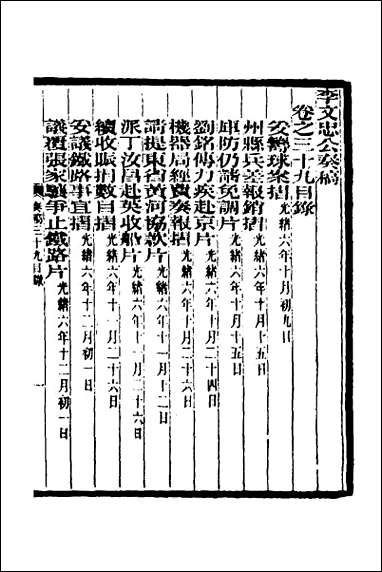 李文忠公奏稿
卷之三十九目錄
妥籌球案摺 光緒六年十月初九日
州縣兵差報銷摺 光緒六年十月十五日
車防仍請免調片 光緒六年十月十五日
劉銘傳力疾赴京片 光緒六年十月二十四日
機器局經費奏報摺 光緒六年十月二十六日
請提東省黃河協款片 光緒六年十一月十二日
派丁汝昌赴英收船片 光緒六年十一月二十六日
續收賑捐數目摺 光緒六年十一月二十六日
妥議鐵路事宜摺 光緒六年十二月初一日
議覆張家驤爭止鐵路片 光緒六年十二月初一日
奏稿三十九目錄
一